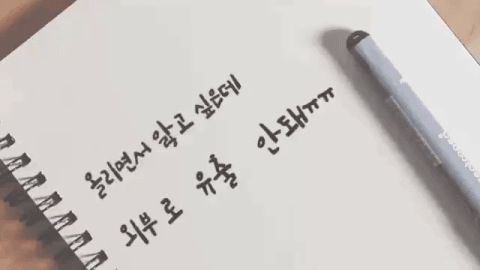 올리면서 앓고 싶은데
외부로 유출 안돼ㅠㅠ